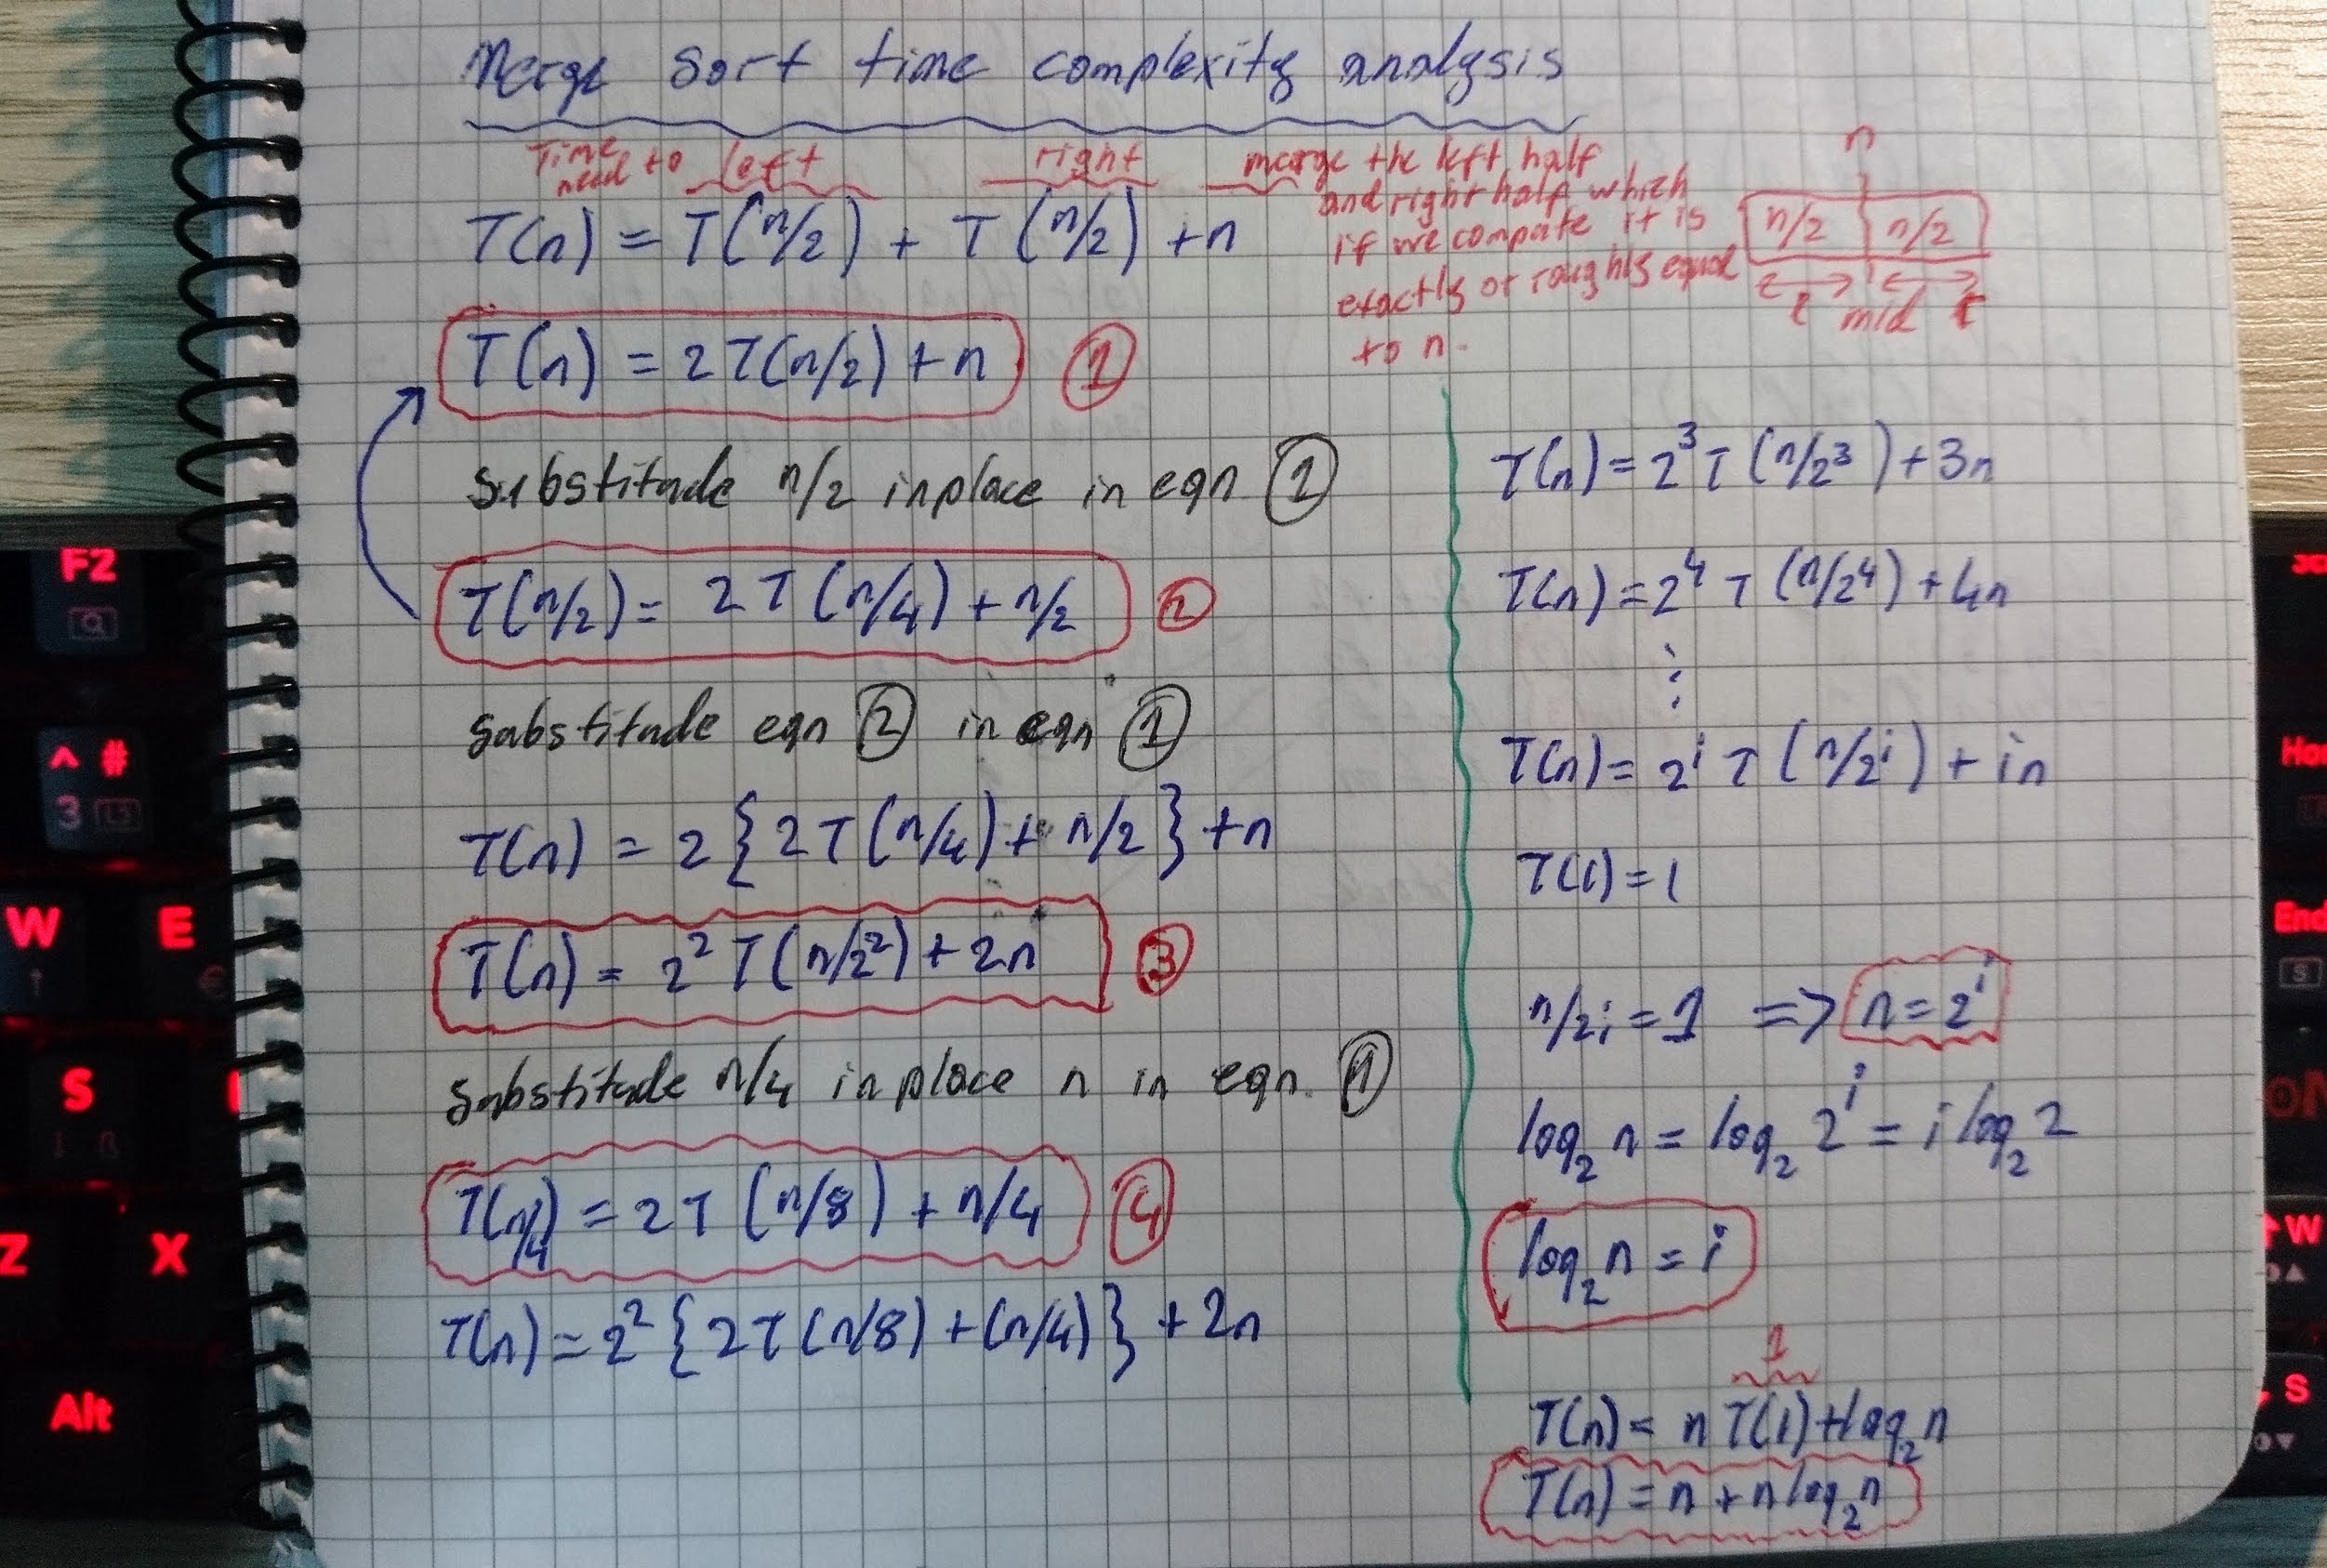 Merge Sort time complexity analysis
Time need to left right merge the left half
and right half which
if we compate it is
exactly or roughly equal
to n.
n
n/2 n/2
l mid r
T(n) = T(n/2) + T(n/2) + n
T(n) = 2T(n/2) + n ①
substitude n/2 inplace in eqn ①
T(n/2) = 2T(n/4) + n/2 ②
substitude eqn ② in eqn ①
T(n) = 2{2T(n/4) + n/2} + n
T(n) = 2² T(n/2²) + 2n ③
substitude n/4 inplace n in eqn. ①
T(n/4) = 2T(n/8) + n/4 ④
T(n) = 2²{2T(n/8) + (n/4)} + 2n
T(n) = 2³T(n/2³) + 3n
T(n) = 2⁴T(n/2⁴) + 4n
⋮
T(n) = 2ⁱ T(n/2ⁱ) + in
T(1) = 1
n/2i = 1 => n = 2ⁱ
log₂ n = log₂ 2ⁱ = i log₂ 2
log₂ n = i
1
T(n) = n T(1) + log₂ n
T(n) = n + n log₂ n
F2
^ #
3
W E
S
Z X
Alt
End
S
W
S